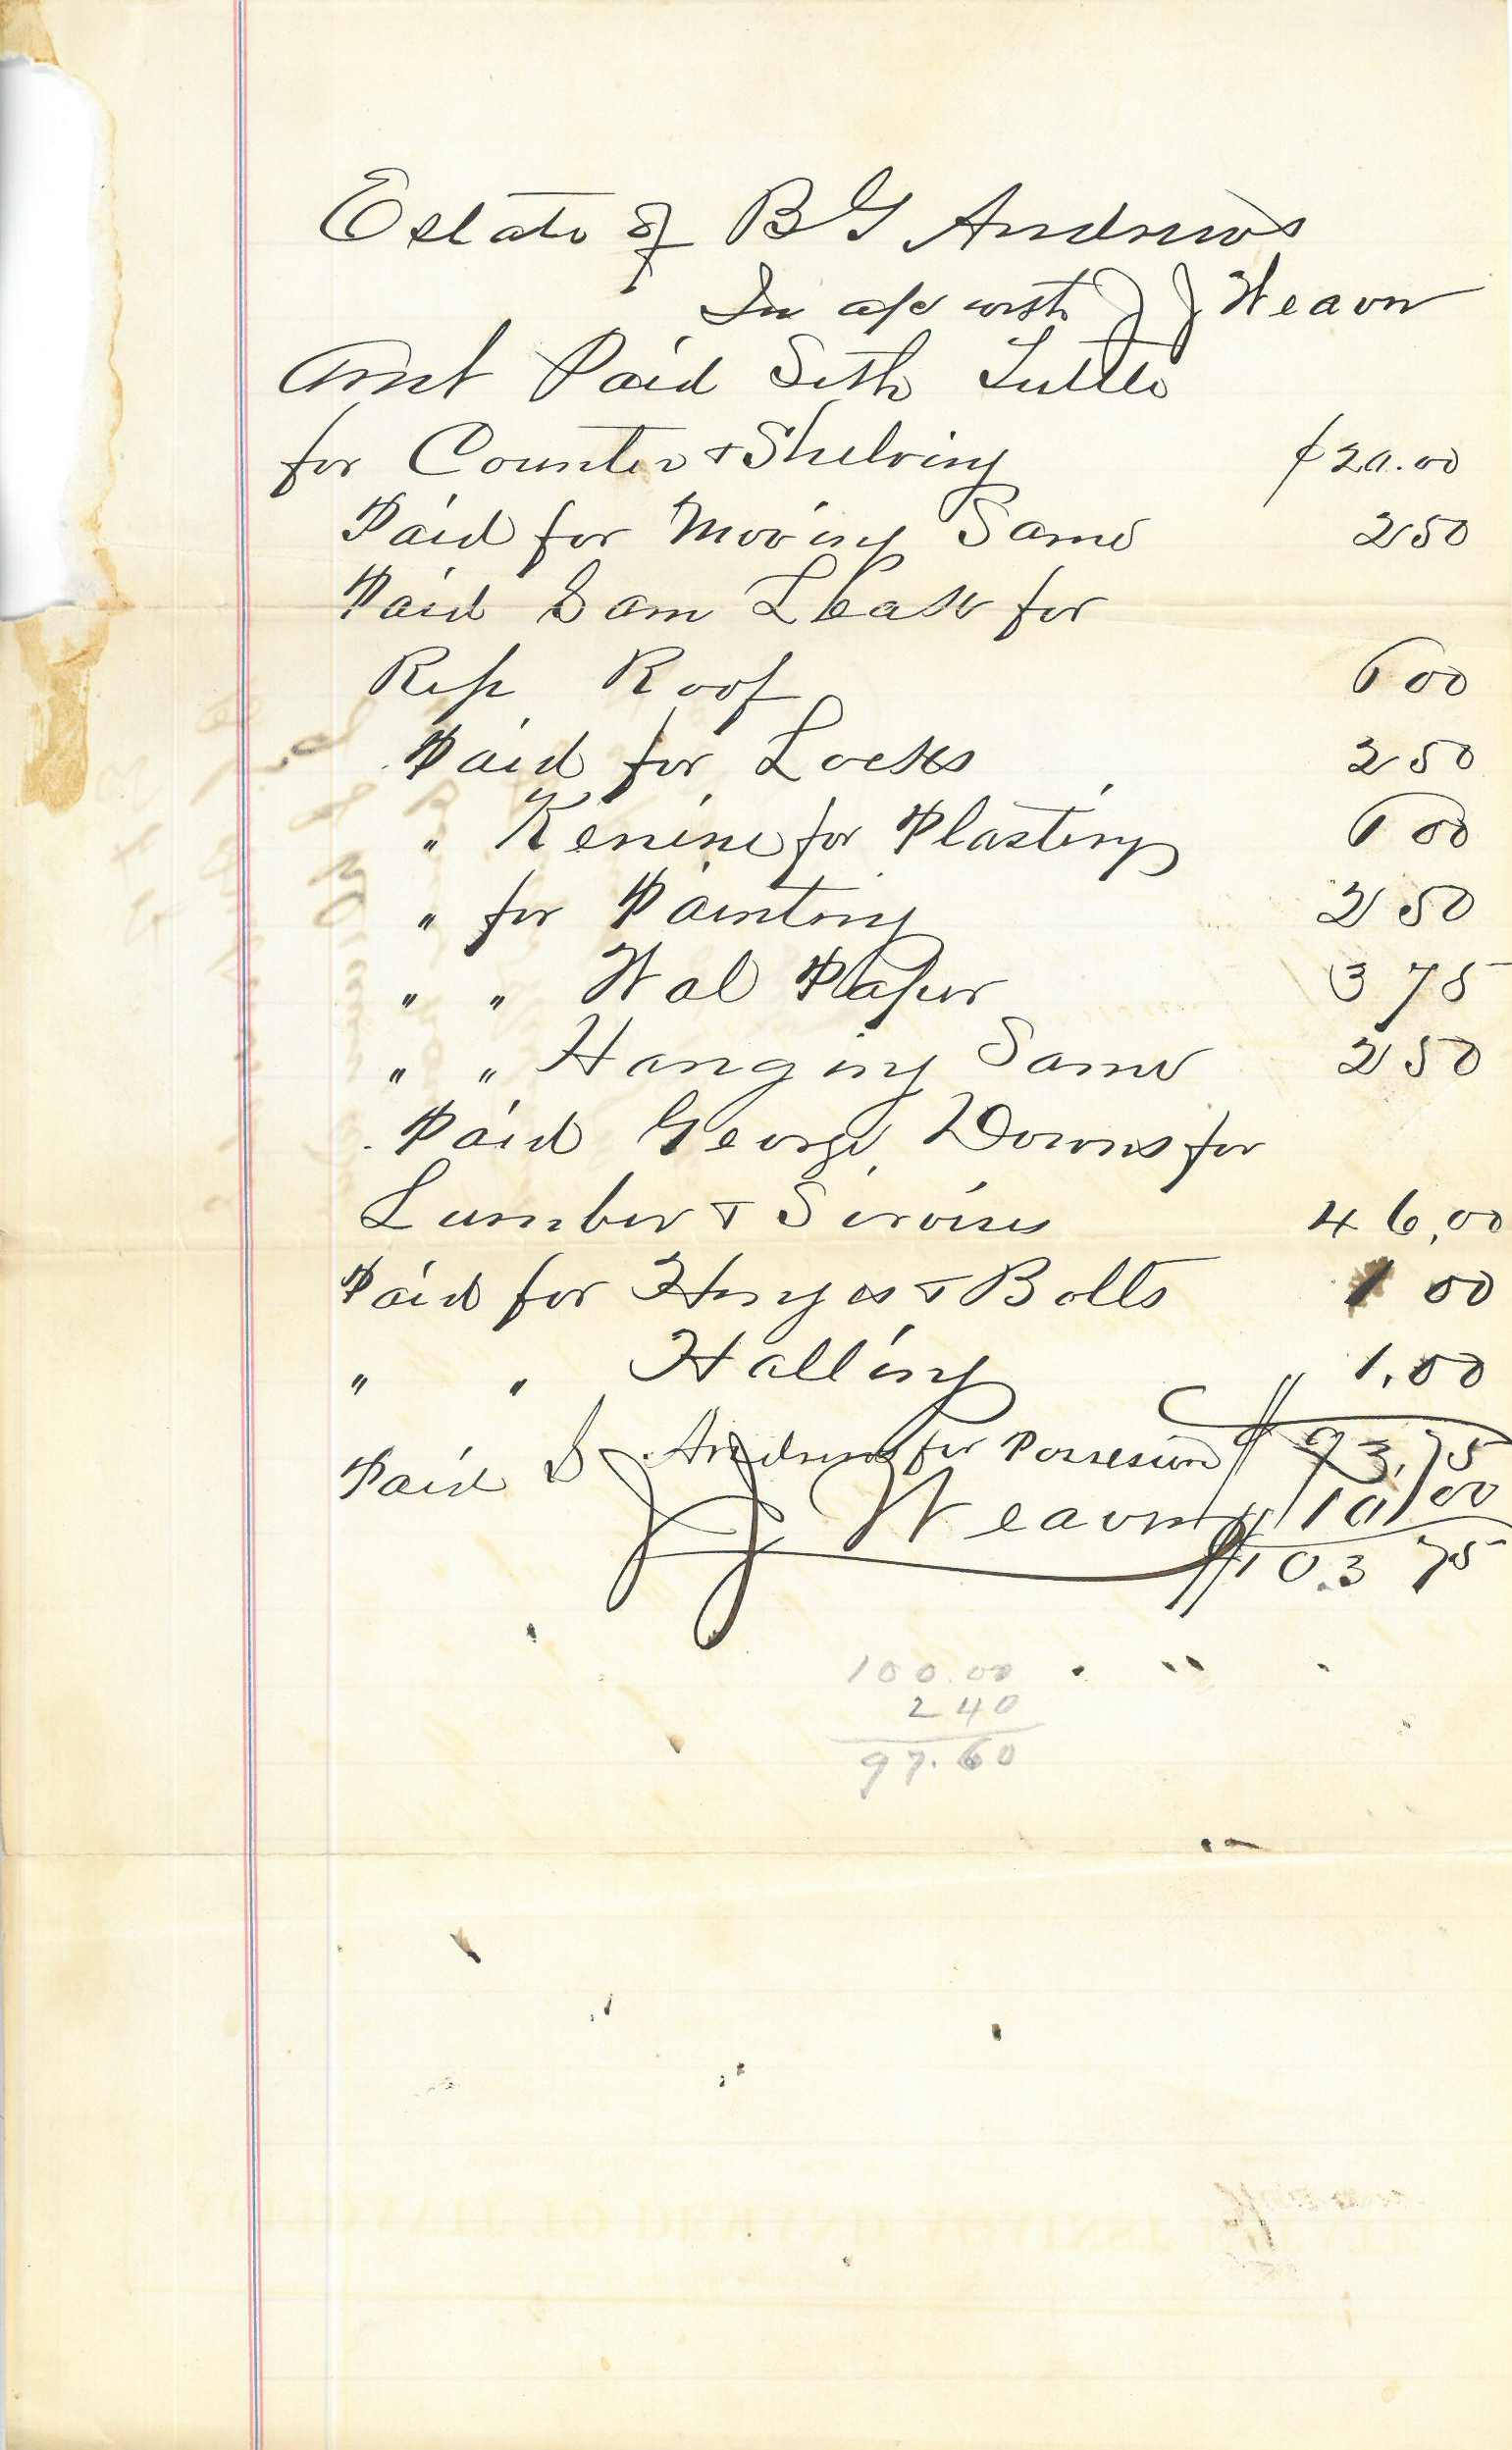 Estate of B G Andrews
In a/c with J J Weaver
Amt Paid Seth Tuttle
for Counter & Shelving $20.00
Paid for Moving Same 2 50
Paid Sam Lease for
Rep Roof 6 00
Paid for Locks 2 50
" Kenine for Plastering 6 00
" for Painting 2 50
" " Wal Paper 3 75
" " Hanging Same 2 50
Paid George Downs for
Lumber & Servises 46.00
Paid for Hinges & Bolts 1 00
" " Halling 1.00
$93.75
Paid S Andrews for Possesion 10 00
J J Weaver $103 75
100.00
2 40
97.60